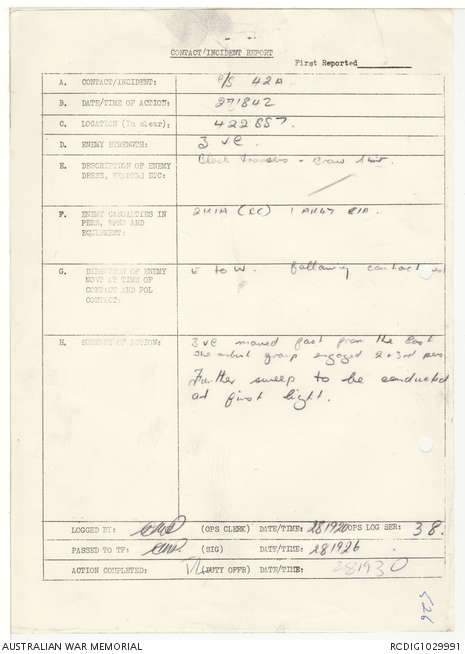 CONTACT/INCIDENT REPORT
First Reported
A. CONTACT/INCIDENT: C/S 42A
B. DATE/TIME OF ACTION: 271842
C. LOCATION (In clear): 422857.
D. ENEMY STRENGTH: 3 VC
E. DESCRIPTION OF ENEMY
DRESS, WEAPONS ETC: Black trousers -
F. ENEMY CASUALTIES IN
PERS, WPNS AND
EQUIPMENT: 2KIA (BC) 1 AK47 CIA
G. DIRECTION OF ENEMY
MOVT AT TIME OF
CONTACT AND FOL
CONTACT: E to W. following contact
H. SUMMARY OF ACTION: 3 VC moved past from the East
The ambush group engaged 2 + 3rd pers
Further sweep to be conducted
at first light.
LOGGED BY: (OPS CLERK) DATE/TIME: 281920 OPS LOG SER: 38.
PASSED TO TF: (SIG) DATE/TIME: 281926
ACTION COMPLETED: (DUTY OFFR) DATE/TIME: 281930
526
AUSTRALIAN WAR MEMORIAL
RCDIG1029991